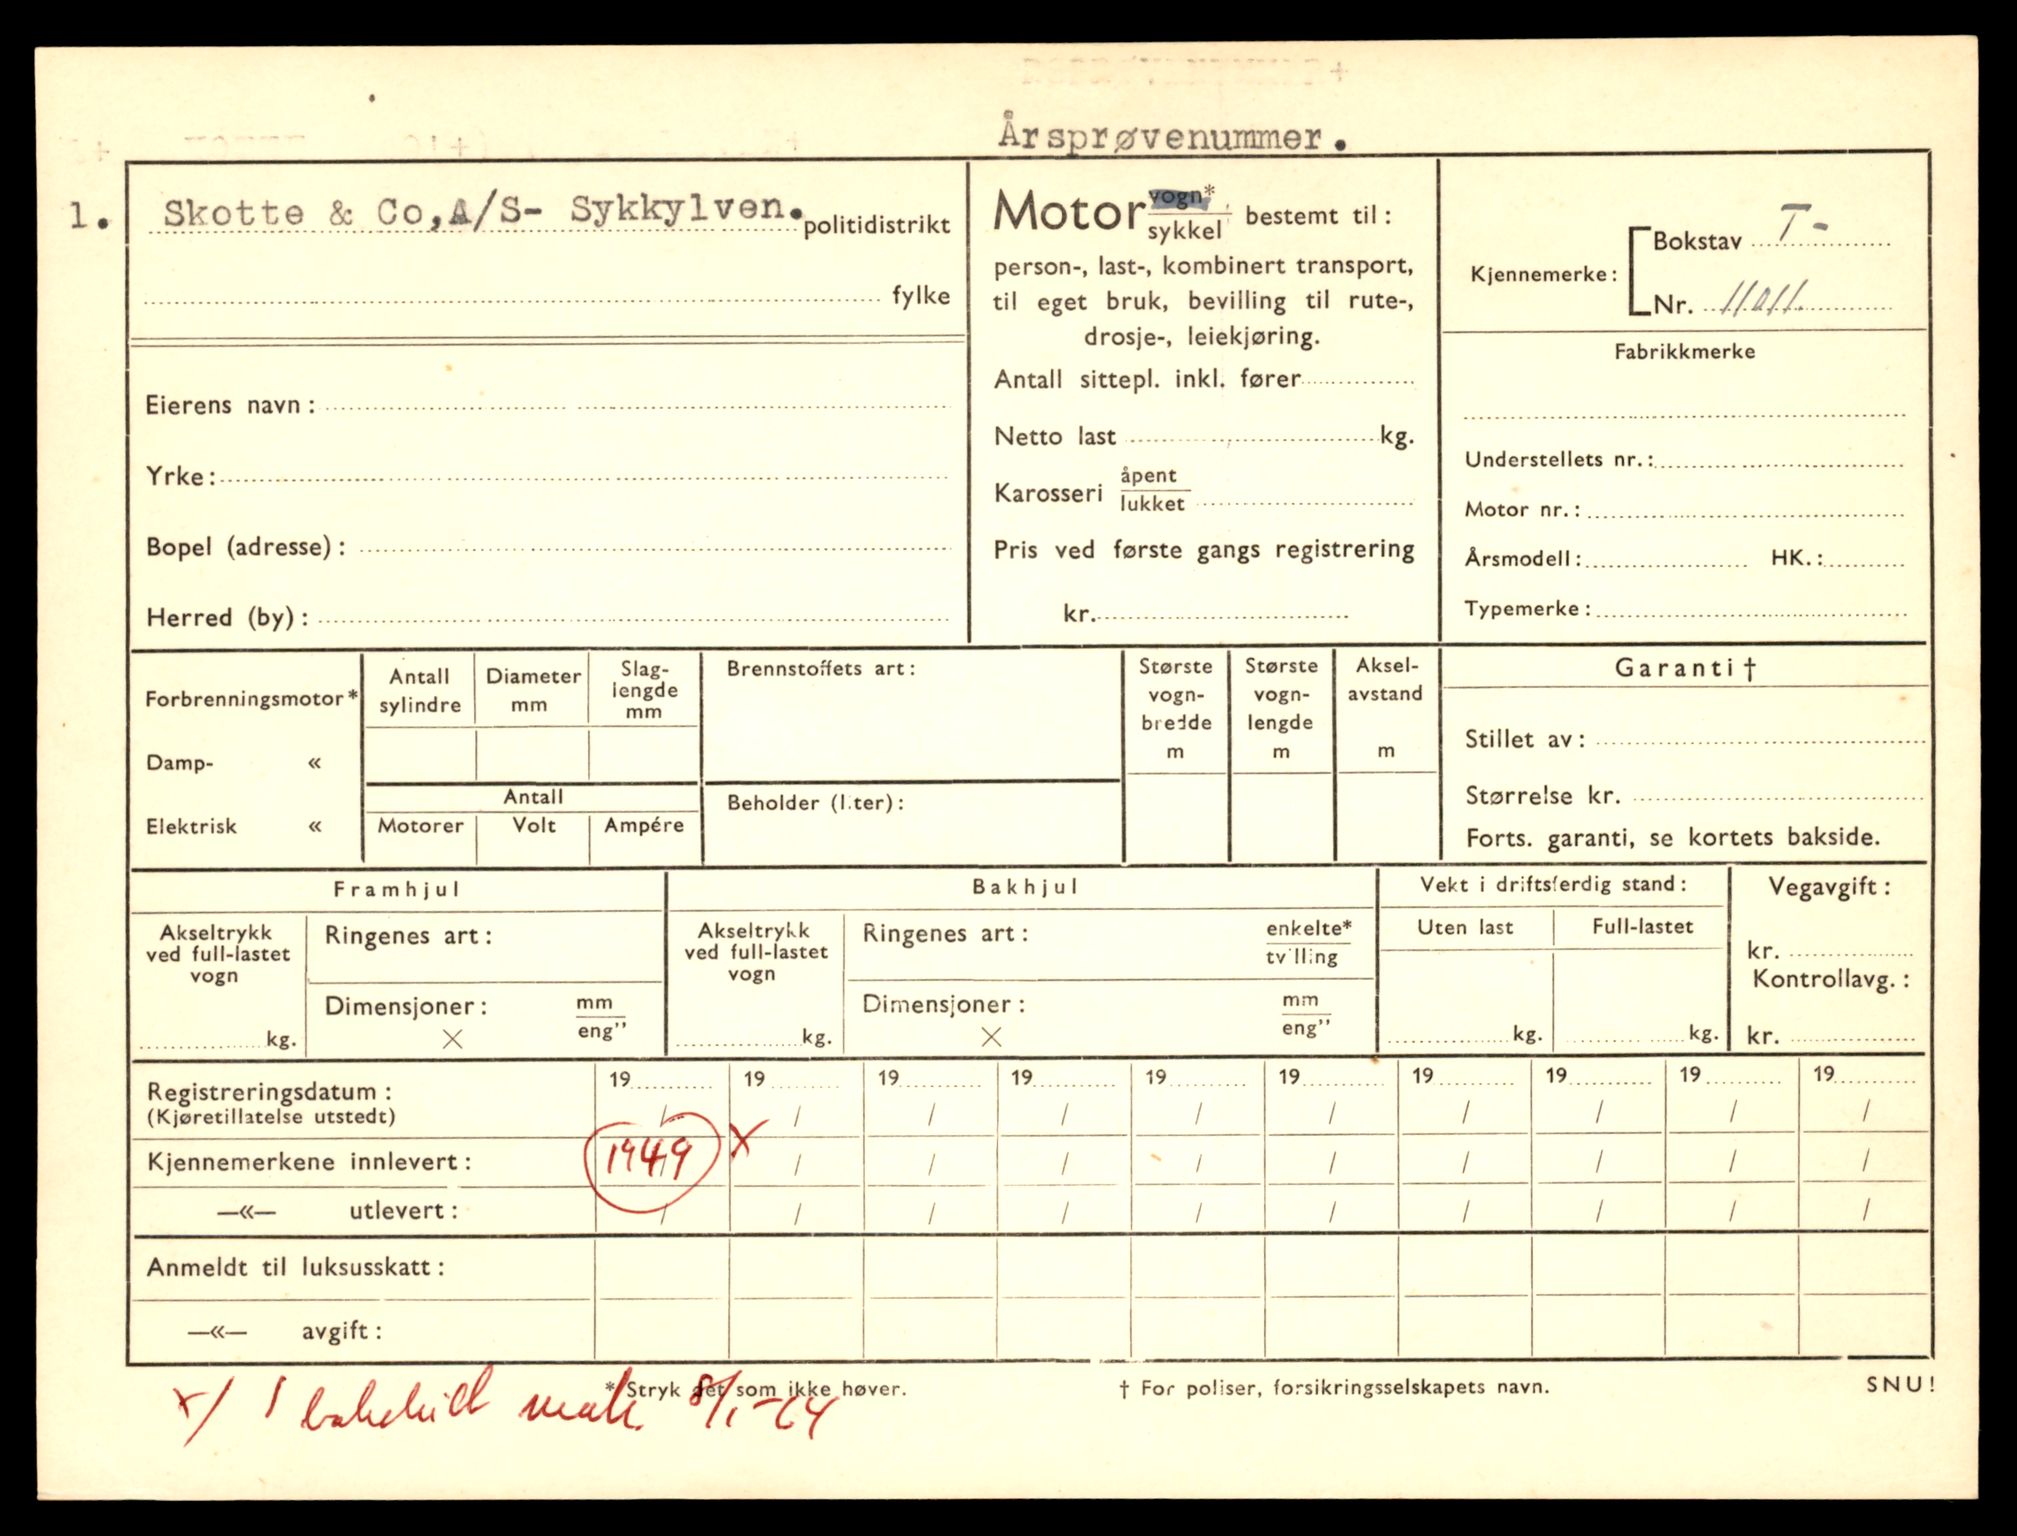 Årsprøvenummer.
1. Skotte & Co,A/S- Sykkylven. politidistrikt
fylke
Eierens navn:
Yrke:
Bopel (adresse):
Herred (by):
Motor vogn* / sykkel bestemt til:
person-, last-, kombinert transport,
til eget bruk, bevilling til rute-,
drosje-, leiekjøring.
Antall sittepl. inkl. fører
Netto last kg.
Karosseri åpent / lukket
Pris ved første gangs registrering
kr.
Kjennemerke:
Bokstav T-
Nr. 11011.
Fabrikkmerke
Understellets nr.:
Motor nr.:
Årsmodell: HK.:
Typemerke:
Forbrenningsmotor*
Damp- «
Elektrisk «
Antall sylindre
Diameter mm
Slag-
lengde
mm
Antall
Motorer Volt Ampére
Brennstoffets art:
Beholder (liter):
Største
vogn-
bredde
m
Største
vogn-
lengde
m
Aksel-
avstand
m
Garanti †
Stillet av:
Størrelse kr.
Forts. garanti, se kortets bakside.
Framhjul
Akseltrykk
ved full-lastet
vogn
kg.
Ringenes art:
Dimensjoner: mm / eng"
×
Bakhjul
Akseltrykk
ved full-lastet
vogn
kg.
Ringenes art: enkelte* / tvilling
Dimensjoner: mm / eng"
×
Vekt i driftsferdig stand:
Uten last Full-lastet
kg. kg.
Vegavgift:
kr.
Kontrollavg.:
kr.
Registreringsdatum: 19 19 19 19 19 19 19 19 19 19
(Kjøretillatelse utstedt) / / / / / / / / / /
Kjennemerkene innlevert: 1949 x / / / / / / / / /
—«— utlevert: / / / / / / / / / /
Anmeldt til luksusskatt:
—«— avgift:
* Stryk det som ikke høver.
† For poliser, forsikringsselskapets navn.
SNU!
x/ 1 8/1-64